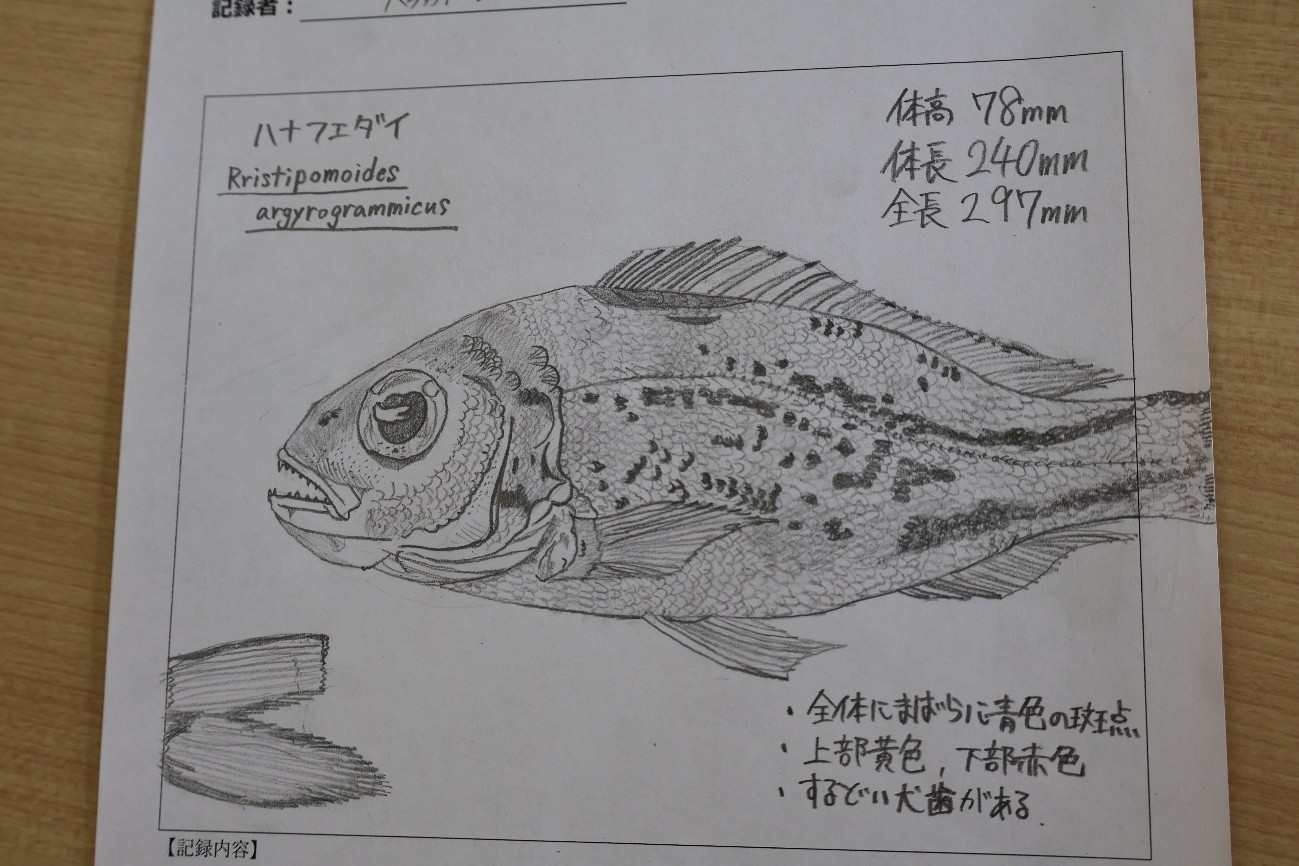 記録者：
ハナフエダイ
Rristipomoides
argyrogrammicus
体高 78mm
体長 240mm
全長 297mm
・全体にまばらに青色の斑点
・上部黄色，下部赤色
・するどい犬歯がある.
【記録内容】